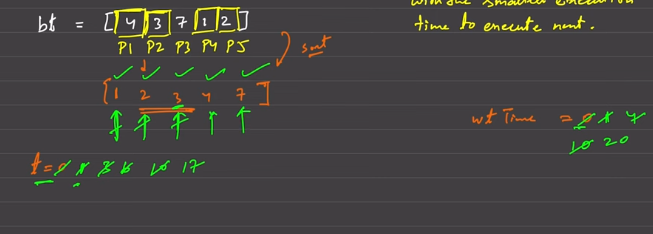 with the smallest execution
bt = [ 4 3 7 1 2 ] time to execute next.
P1 P2 P3 P4 P5 sort
[ 1 2 3 4 7 ]
wt Time = 0 1 4
10 20
t = 0 1 3 6 10 17